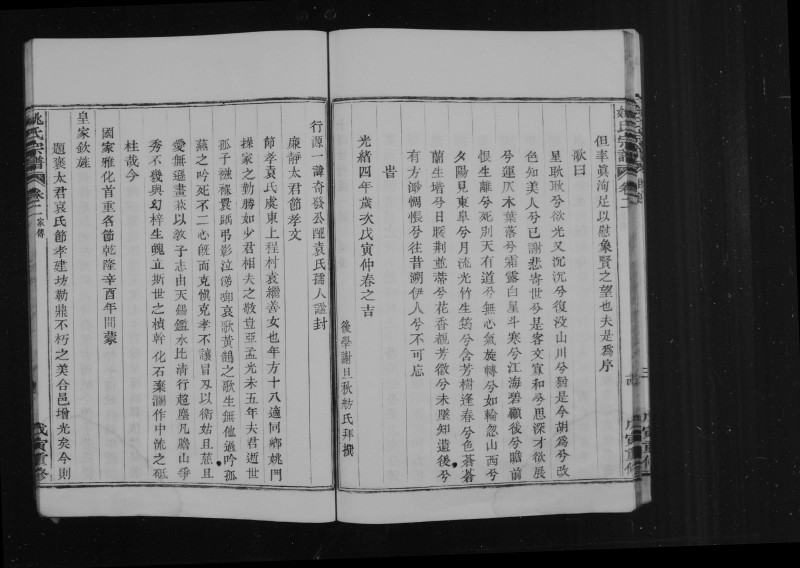 但奉眞洵足以慰象賢之望也夫是爲序
歌曰
星耿耿兮欲光又沉沉兮復没山川兮猶是今胡爲兮改
色知美人兮已謝悲寄世兮是客文宣和兮思深才欲展
兮運仄木葉落兮霜露白星斗寒兮江海碧顧後兮瞻前
恨生離兮死別天有道兮無心氣旋轉兮如輪忽山西兮
夕陽見東阜兮月流光竹生筠兮含芳樹逢春兮色蒼蒼
蘭生堦兮日暖荆並蒂兮花香覩芳徽兮未墜知遺後兮
有方渺惆悵兮往昔溯伊人兮不可忘
旹
光緒四年歲次戊寅仲春之吉
後學謝旦秋舫氏拜撰
行源一諱奇發公配袁氏孺人謚封
廉靜太君節孝文
節孝袁氏虞東上程村袁繼善女也年方十八適同鄉姚門
操家之勤勝如少君相夫之敬豈亞孟光未五年夫君逝世
孤子襁褓煢煢弔影泣涕啣哀歌黃鵠之歌生無他適吟孤
燕之吟死不二心旣而克愼克孝不讓冒刃以衛姑且慈且
愛無遜畫荻以教子志由天錫鑑水比清行超塵凡麟山爭
秀不幾與幻梓生魄立斯世之楨幹化石棄
作中流之砥
柱哉今
國家雅化首重名節乾隆辛酉年間蒙
皇家欽旌
題褒太君袁氏節孝建坊勒鼎不朽之美合邑增光矣今則
姚氏宗譜
卷二
家傳
戊寅重修